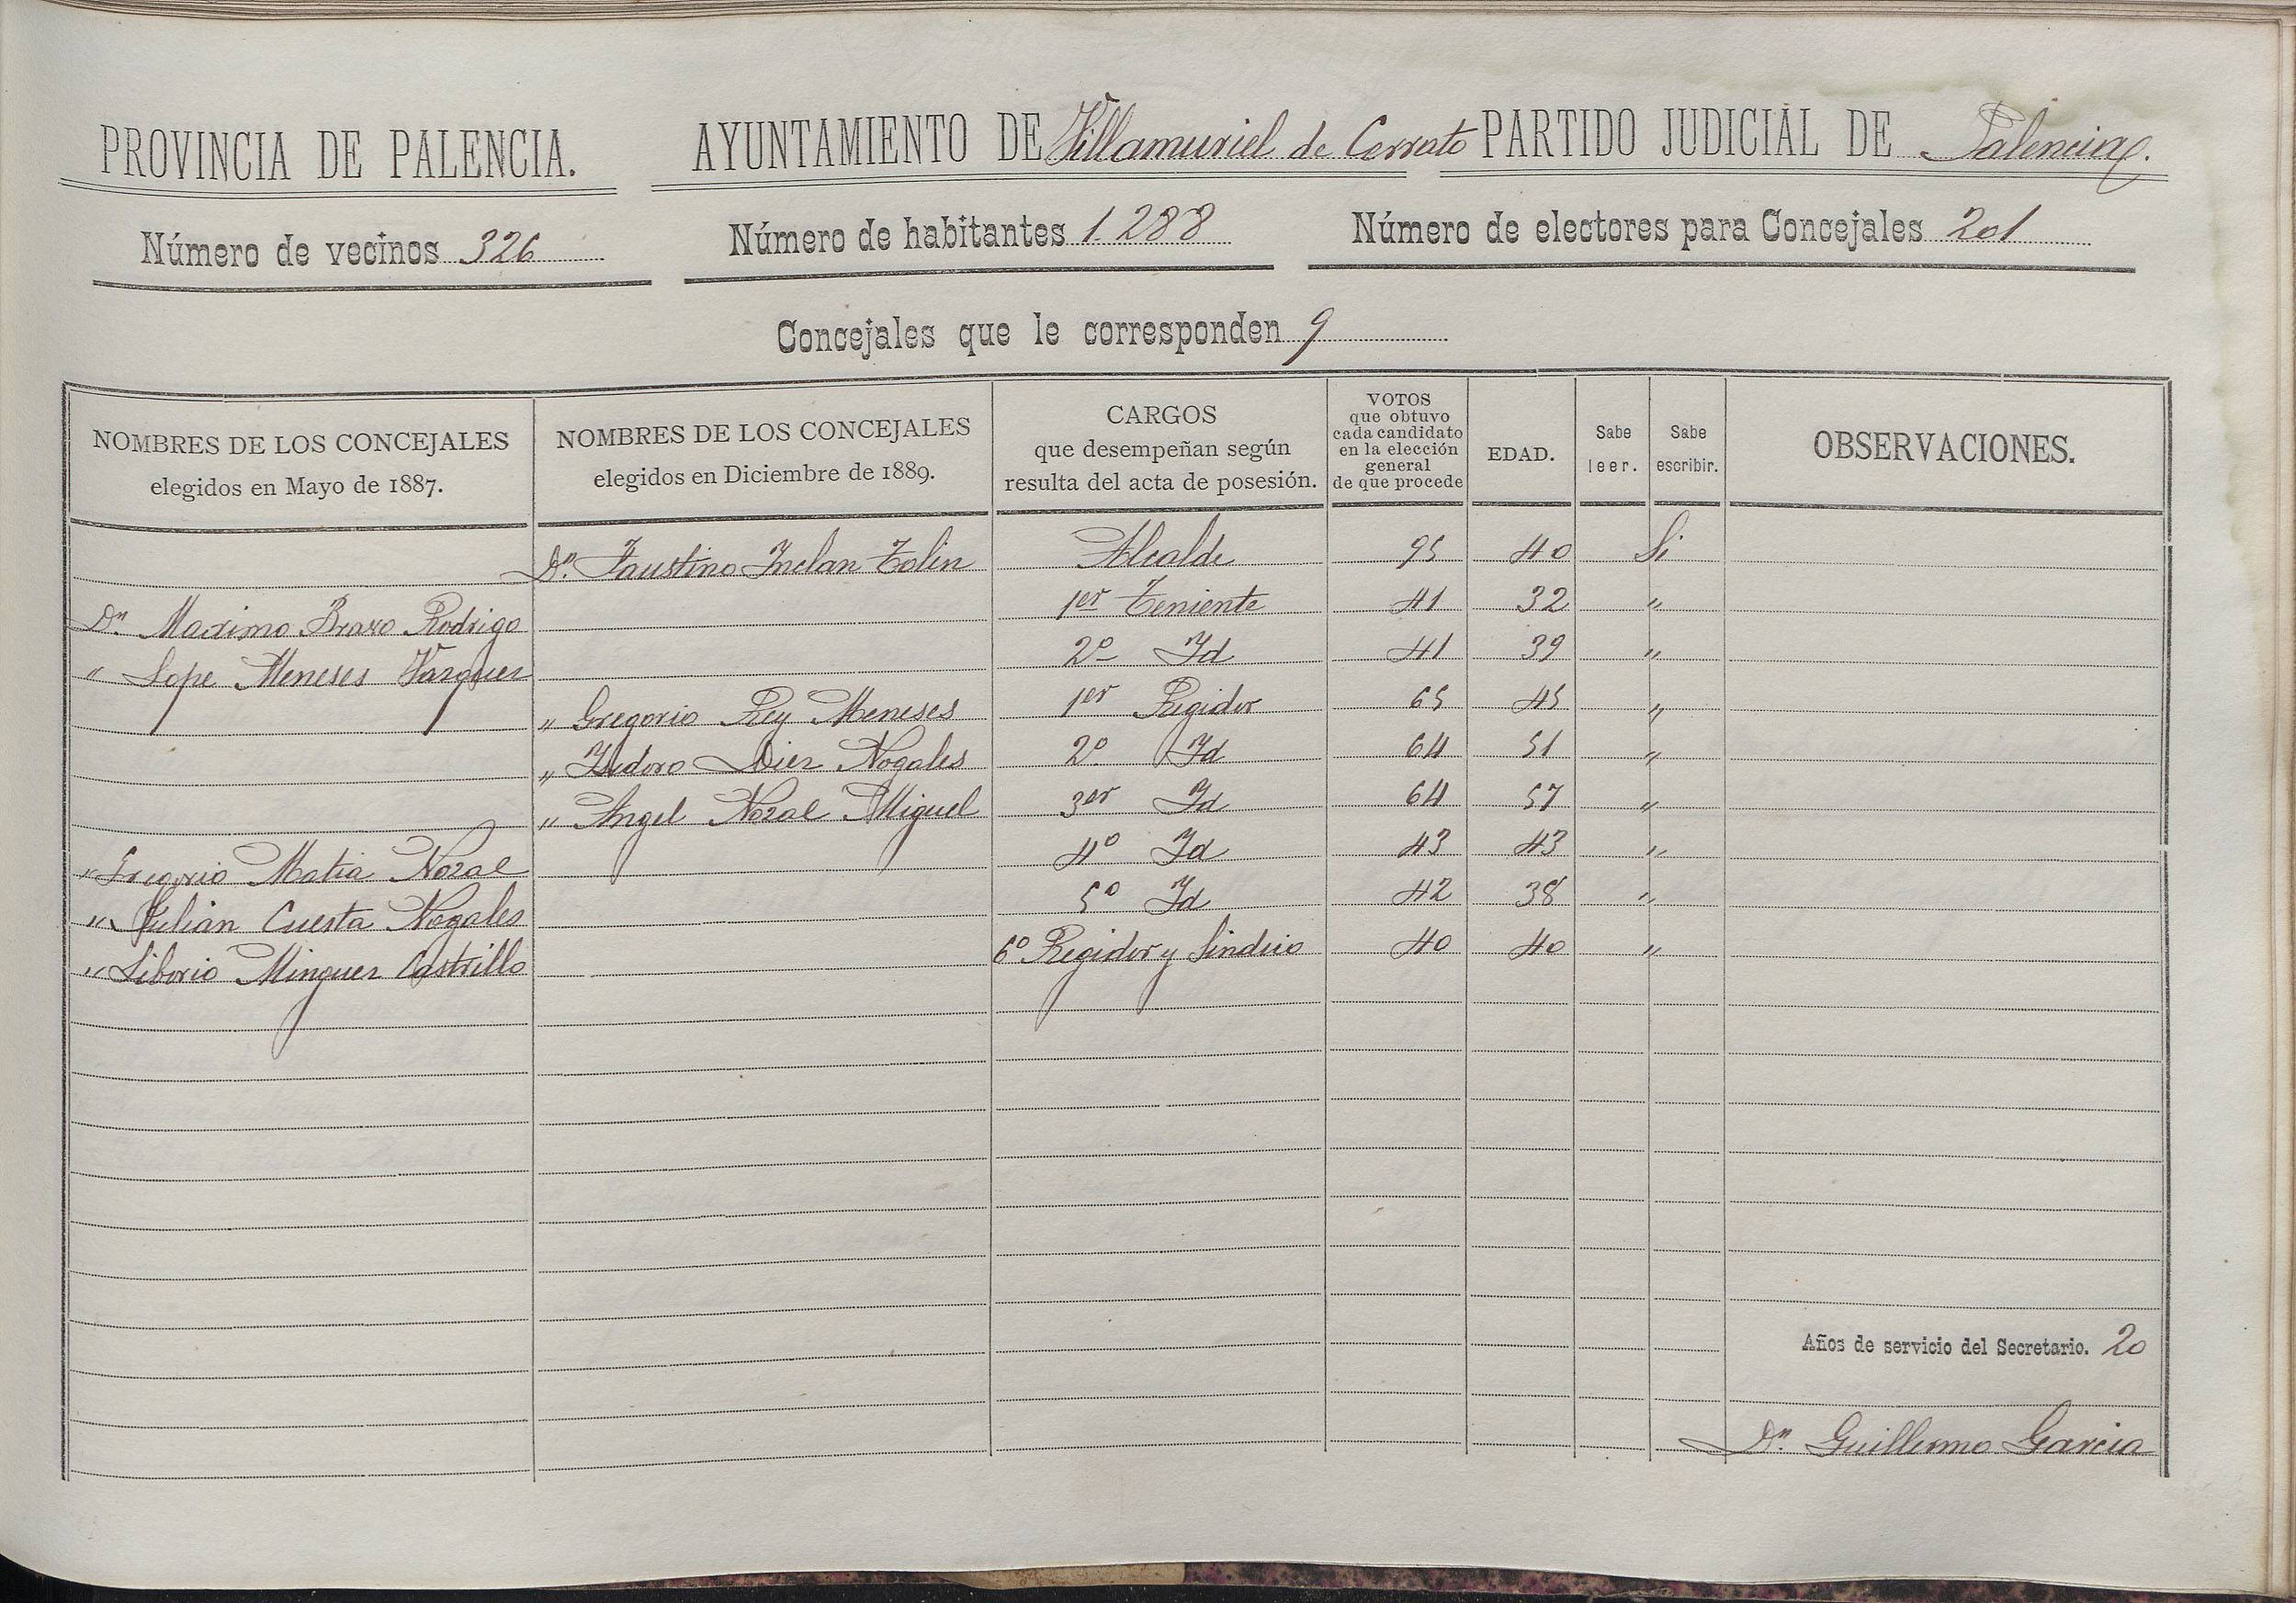 PROVINCIA DE PALENCIA. AYUNTAMIENTO DE Villamuriel de Cerrato PARTIDO JUDICIAL DE Palencia.
Número de vecinos 326 Número de habitantes 1.288 Número de electores para Concejales 201
Concejales que le corresponden 9
NOMBRES DE LOS CONCEJALES
elegidos en Mayo de 1887.
NOMBRES DE LOS CONCEJALES
elegidos en Diciembre de 1889.
CARGOS
que desempeñan según
resulta del acta de posesión.
VOTOS
que obtuvo
cada candidato
en la elección
general
de que procede
EDAD.
Sabe
leer.
Sabe
escribir.
OBSERVACIONES.
Dn. Faustino Inclan Tolin Alcalde 95 40 Si
Dn. Maximo Bravo Rodrigo 1er Teniente 41 32 "
" Lope Meneses Vazquez 2º Id 41 39 "
" Gregorio Rey Meneses 1er Regidor 65 45 "
" Isidoro Diez Nogales 2º Id 64 51 "
" Angel Nozal Miguel 3er Id 64 57 "
" Gregorio Matia Nozal 4º Id 43 43 "
" Julian Cuesta Nogales 5º Id 42 38 "
" Liborio Minguez Castrillo 6º Regidor y Sindico 40 40 "
Años de servicio del Secretario. 20
Dn. Guillermo Garcia